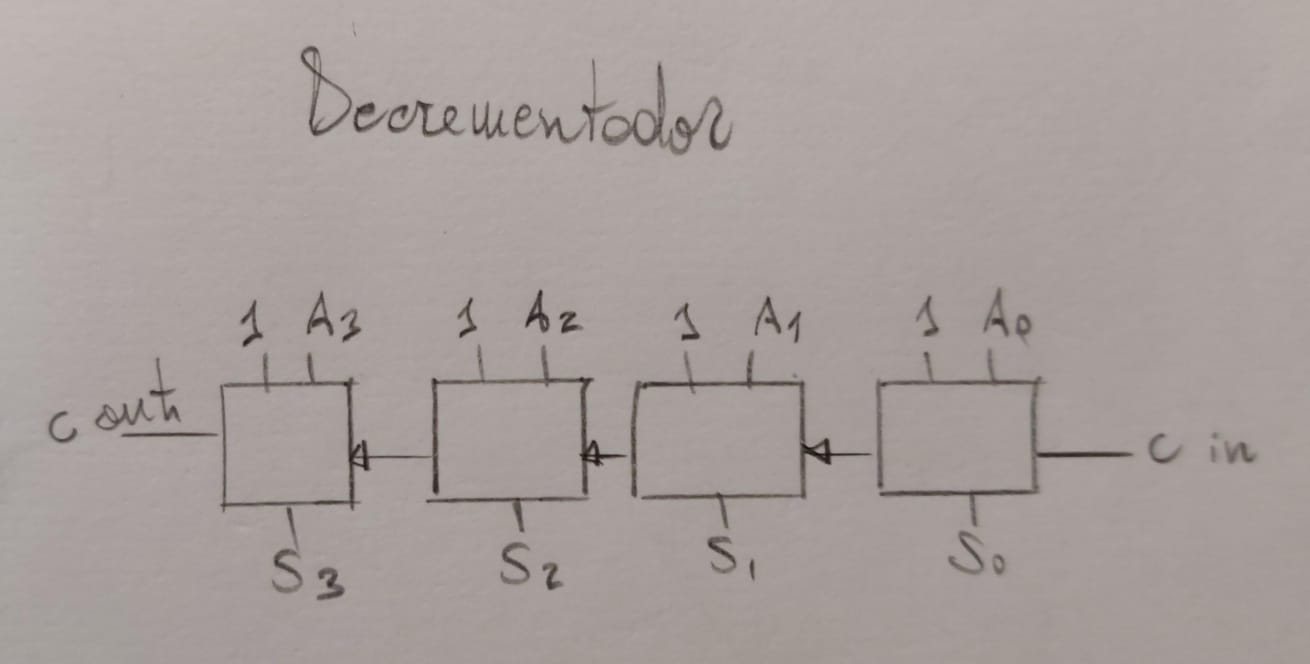 Decrementador
1 A3 1 A2 1 A1 1 A0
C out C in
S3 S2 S1 S0